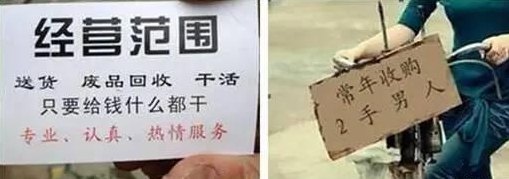 经营范围
送货 废品回收 干活
只要给钱什么都干
专业、认真、热情服务
常年收购
2手男人